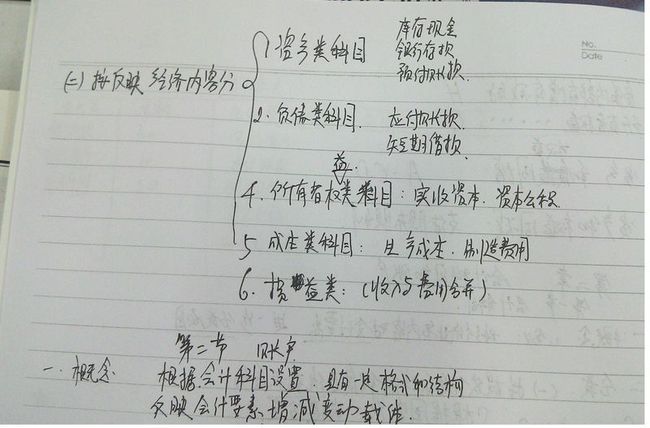 No.
Date
(二) 按反映经济内容分
1 资产类科目 库存现金
银行存款
预付账款
2. 负债类科目. 应付账款.
短期借款.
益
4. 所有者权类科目: 实收资本. 资本公积
5 成本类科目: 生产成本. 制造费用
6. 损益类: (收入与费用合并)
第二节 账户
一. 概念. 根据会计科目设置. 具有一定格式和结构
反映会计要素增减变动载体.